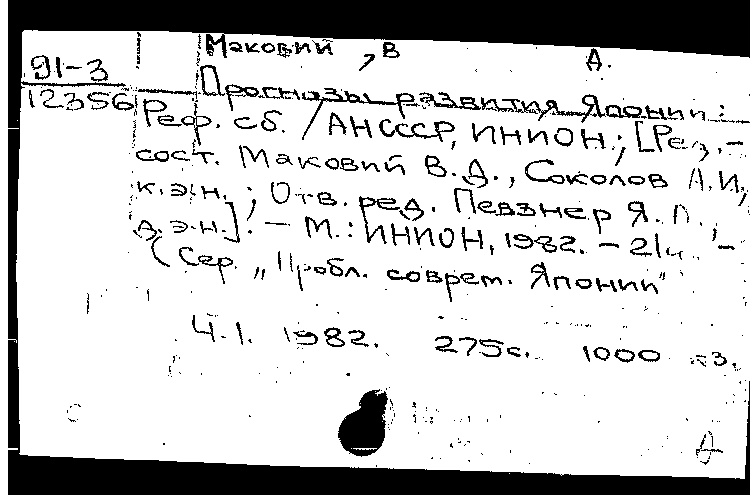 Маковий , В А.
91-3
Прогнозы развития Японии :
12356 Реф. сб. / АН СССР, ИНИОН ; [Рез,-
сост. Маковий В.Д., Соколов А.И,
к.э.н. ; Отв. ред. Певзнер Я.А.,
д.э.н.]. – М. : ИНИОН, 1982. – 2 ч. –
(Сер. „Пробл. соврем. Японии"
Ч.1. 1982. 275с. 1000 экз.
Д